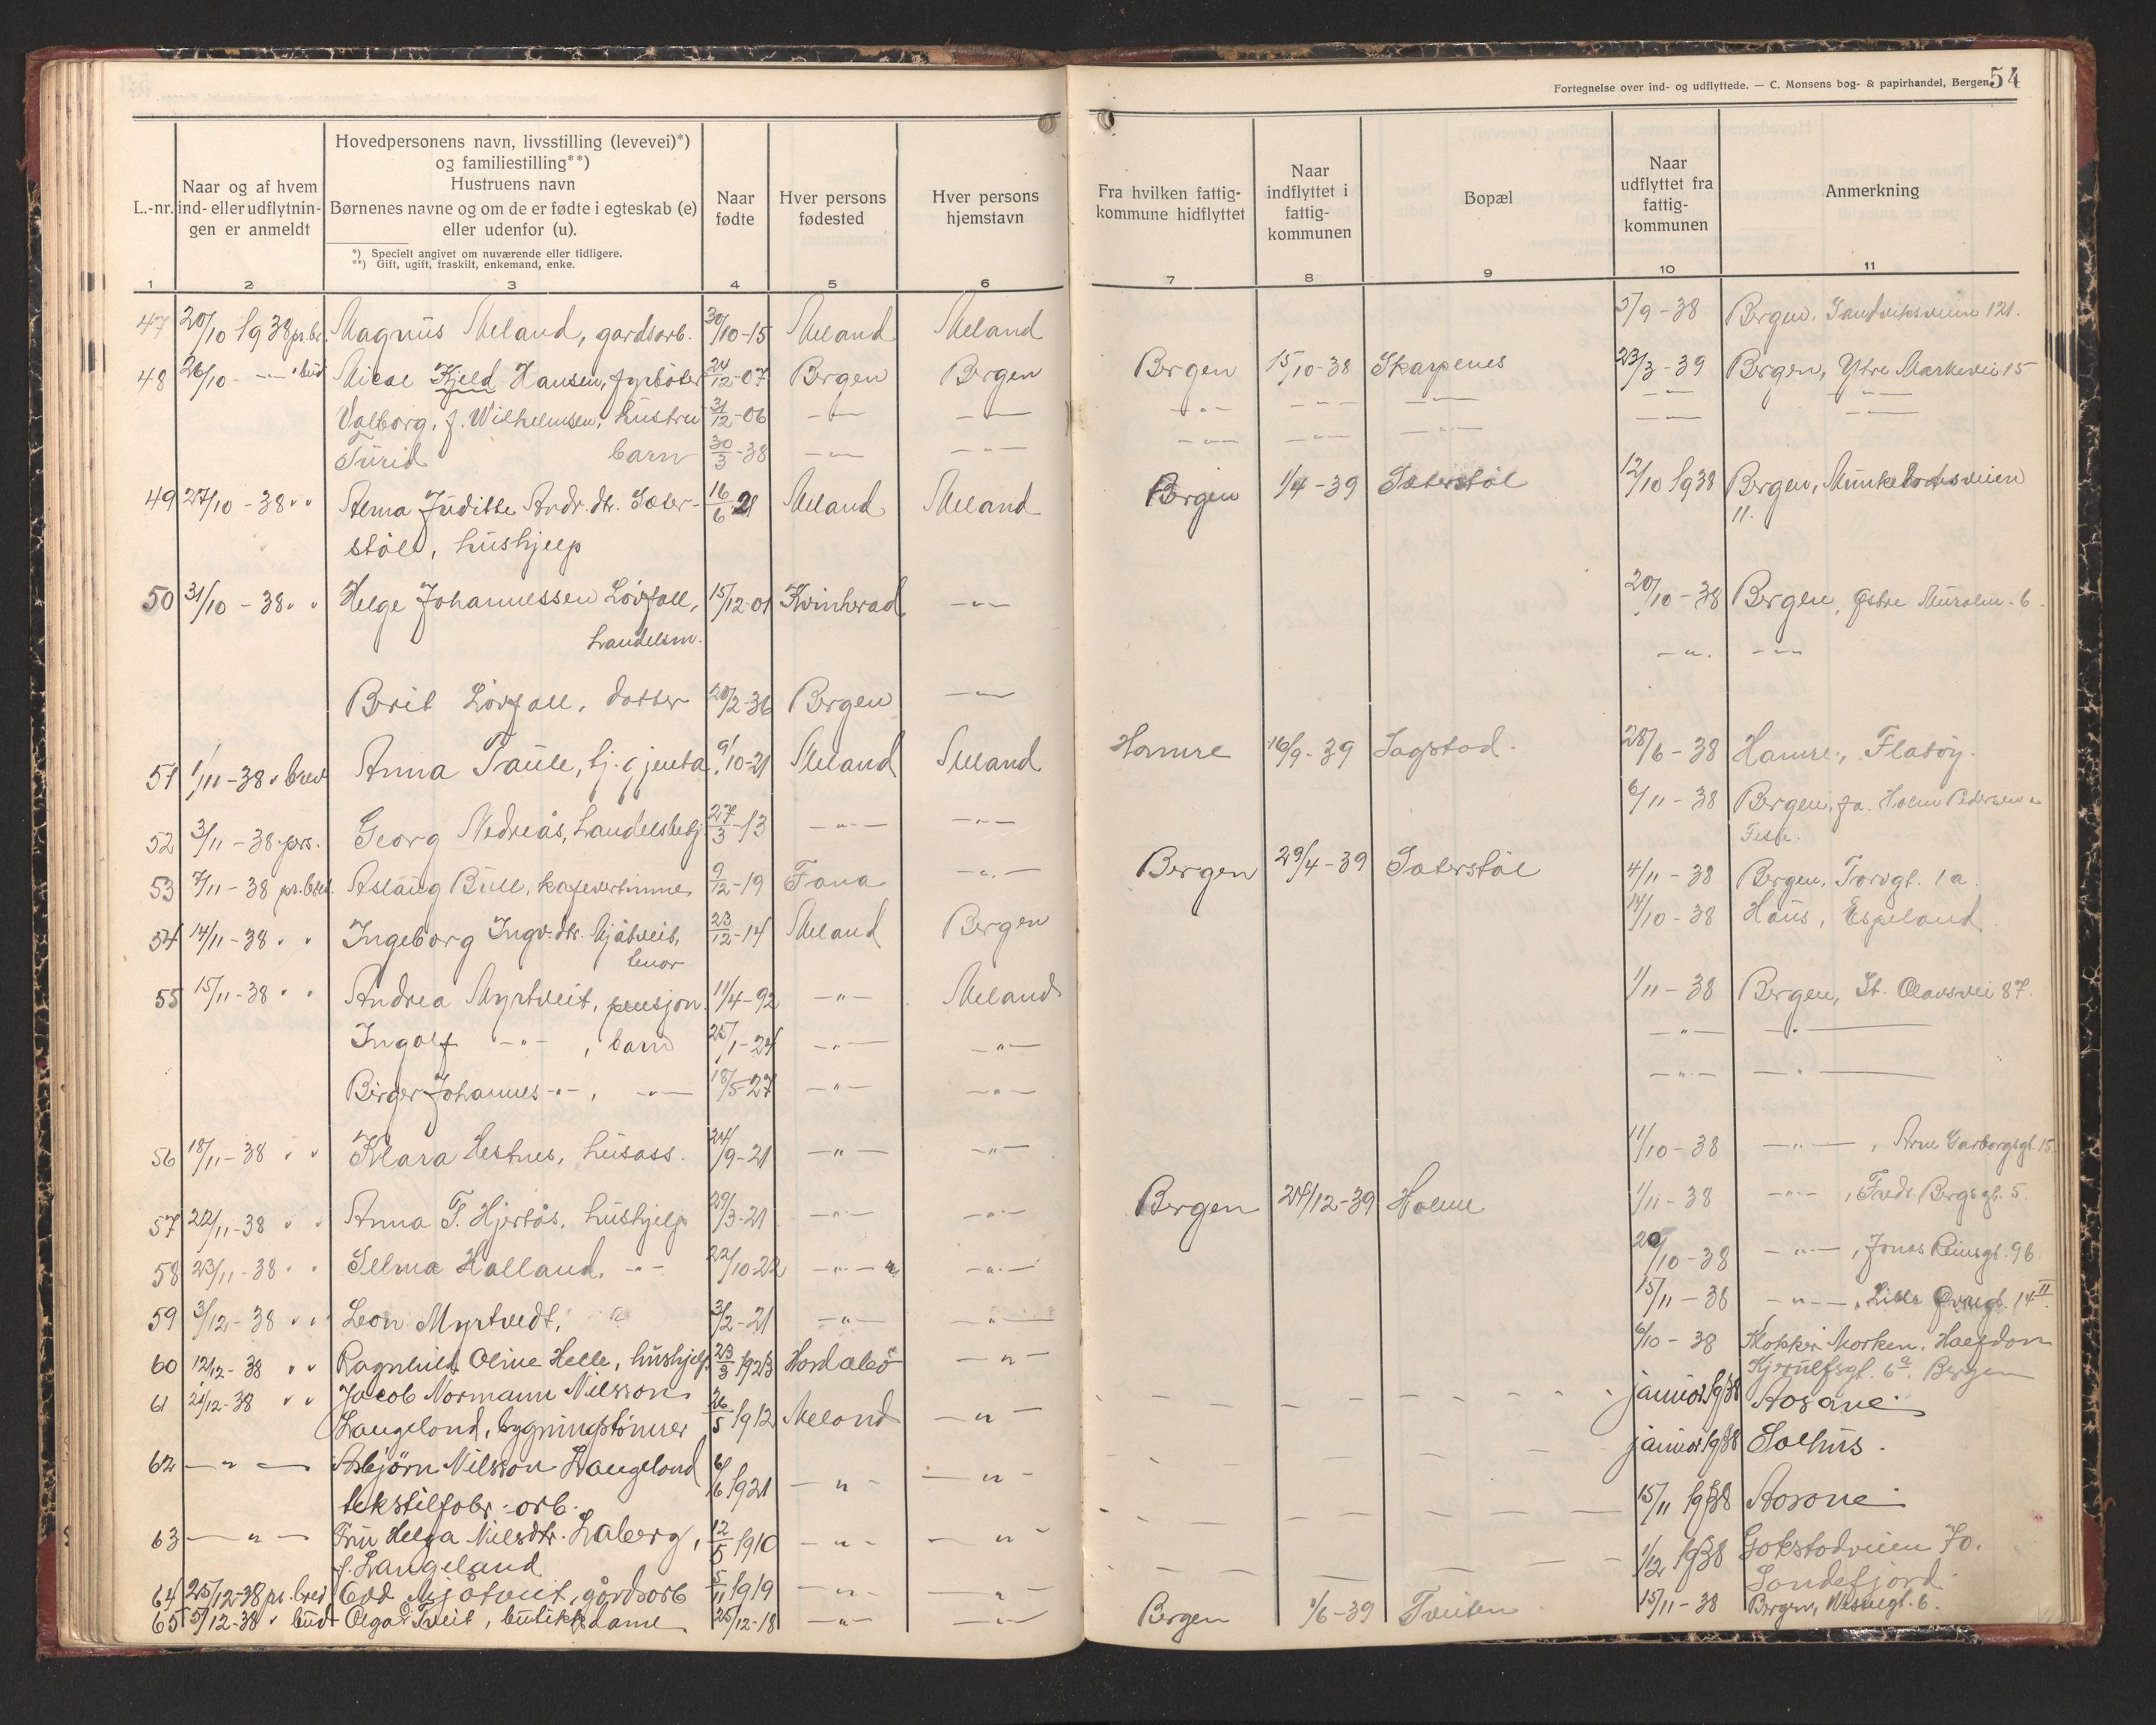 Fortegnelse over ind- og udflyttede. — C. Monsens bog- & papirhandel, Bergen.
54
L.-nr.
Naar og af hvem
ind- eller udflytnin-
gen er anmeldt
Hovedpersonens navn, livsstilling (levevei)*)
og familiestilling**)
Hustruens navn
Børnenes navne og om de er fødte i egteskab (e)
eller udenfor (u).
*) Specielt angivet om nuværende eller tidligere.
**) Gift, ugift, fraskilt, enkemand, enke.
Naar
fødte
Hver persons
fødested
Hver persons
hjemstavn
Fra hvilken fattig-
kommune hidflyttet
Naar
indflyttet i
fattig-
kommunen
Bopæl
Naar
udflyttet fra
fattig-
kommunen
Anmerkning
1 2 3 4 5 6 7 8 9 10 11
47 20/10 1938 pr.br. Magnus Meland, gardsarb. 30/10-15 Meland Meland 5/9-38 Bergen, Sandviksveien 121.
48 26/10 —"— bud Kjeld Hansen, fyrbøter 24/12-07 Bergen Bergen Bergen 15/10-38 Skarpenes 23/3-39 Bergen, Ytre Markevei 15
Valborg, f. Wilhelmsen, hustru 31/12-06 —"— —"— —"— —"— —"— —"— —"—
Turid barn 30/3-38 —"— —"— —"— —"— —"— —"— —"—
49 27/10-38 " " Alma Juditte Andr.dtr. Sæter- 16/6 21 Meland Meland Bergen 1/4-39 Sæterstøl 12/10 1938 Bergen, Munkebotsveien
støl, hushjelp 11.
50 31/10-38 " " Helge Johannessen Løvfall, 15/12-01 Kvinherad —"— 20/10-38 Bergen, Østre Muralm. 6
handelsm. —"— —"—
Brit Løvfall, datter 20/2-36 Bergen —"—
51 1/11-38 " brev Anna Taule, hj.gjenta 9/10-21 Meland Meland Hamre 16/9-39 Sagstad 28/6-38 Hamre, Flatøy.
52 3/11-38 prs. Georg Nedreås, handelsbetj. 27/3-13 —"— —"— 6/11-38 Bergen, fa. Holm Pedersen
53 7/11-38 pr.brev Aslaug Bull, kafevertinne 9/12-19 Fana —"— Bergen 29/4-39 Sæterstøl 4/11-38 Bergen, Torvgt. 1a
54 14/11-38 " " Ingeborg Ingv.dtr. Mjåtveit, 23/12-14 Meland Bergen 14/10-38 Haus, Espeland
55 15/11-38 " " Andrea Myrtveit, pensjon. 11/4-92 —"— Meland 1/11-38 Bergen, St. Olavsvei 87.
Ingolf —"—, barn 25/1-24 —"— —"— —"— —"—
Birger Johannes —"—, —"— 18/5-27 —"— —"— —"— —"—
56 18/11-38 " " Klara Hestnes, husass. 24/9-21 —"— —"— 11/10-38 —"—, Arne Garborgsgt. 15
57 22/11-38 " " Anna T. Hjertås, hushjelp 29/3-21 —"— —"— Bergen 24/12-39 Holme 1/11-38 —"—, Fredr. Bergsgt. 5.
58 23/11-38 " " Selma Halland, —"— 22/10-22 —"— —"— 20/10-38 —"—, Jonas Reinsgt. 9b.
59 3/12-38 " " Leon Myrtvedt, 3/2-21 —"— —"— 15/11-38 —"—, Lille Øvregt. 14 II.
60 12/12-38 " " Ragnhild Oline Helle, hushjelp 23/3 1923 Hordabø —"— 6/10-38 Klokker Morken, Halfdan
Kjerulfsgt. 6a. Bergen
61 21/12-38 " " Jacob Normann Nilsson
Langeland, bygningstømrer 26/5 1912 Meland —"— januar 1938 Aasane
62 —"— Asbjørn Nilsson Langeland 6/6 1921 —"— —"— januar 1938 Salhus.
tekstilfabr.arb. 
63 —"— Fru Helga Nilsdtr. Laberg, 12/5 1910 —"— —"— 15/11 1938 Aasane
f. Langeland
64 25/12-38 pr. brev Odd Mjåtveit, gårdsarb 5/11 1919 —"— —"— 1/12 1938 Gokstadveien 70.
Sandefjord
65 5/12-38 " bud Olga Tveit, butikkdame 25/12-18 —"— —"— Bergen 1/6-39 Tveiten 15/11-38 Bergen,